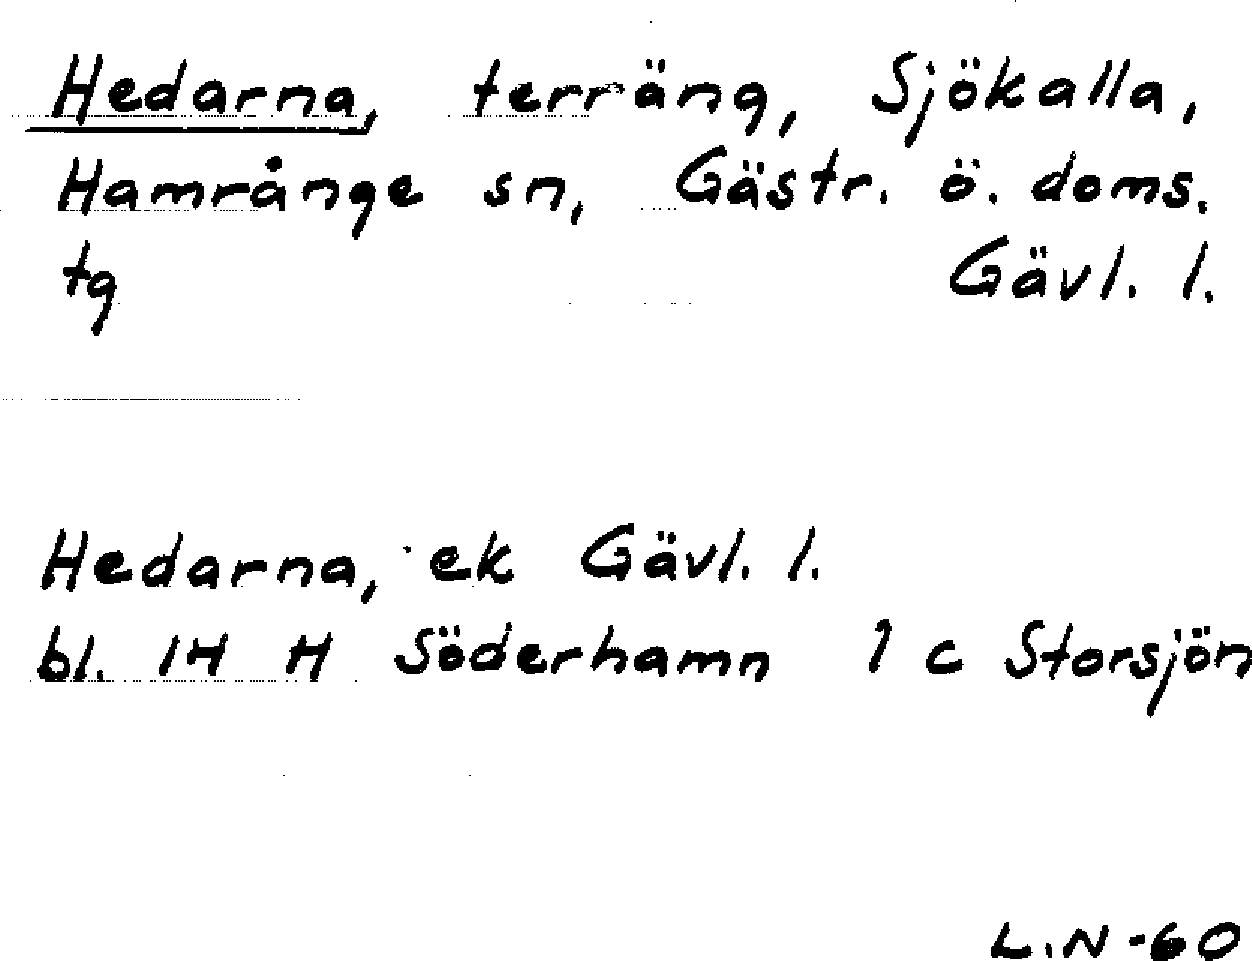 Hedarna, terräng, Sjökalla,
Hamrånge sn, Gästr. ö. doms.
tg Gävl. l.
Hedarna, ek Gävl. l.
bl. 14 H Söderhamn 1 c Storsjön
L.N-60